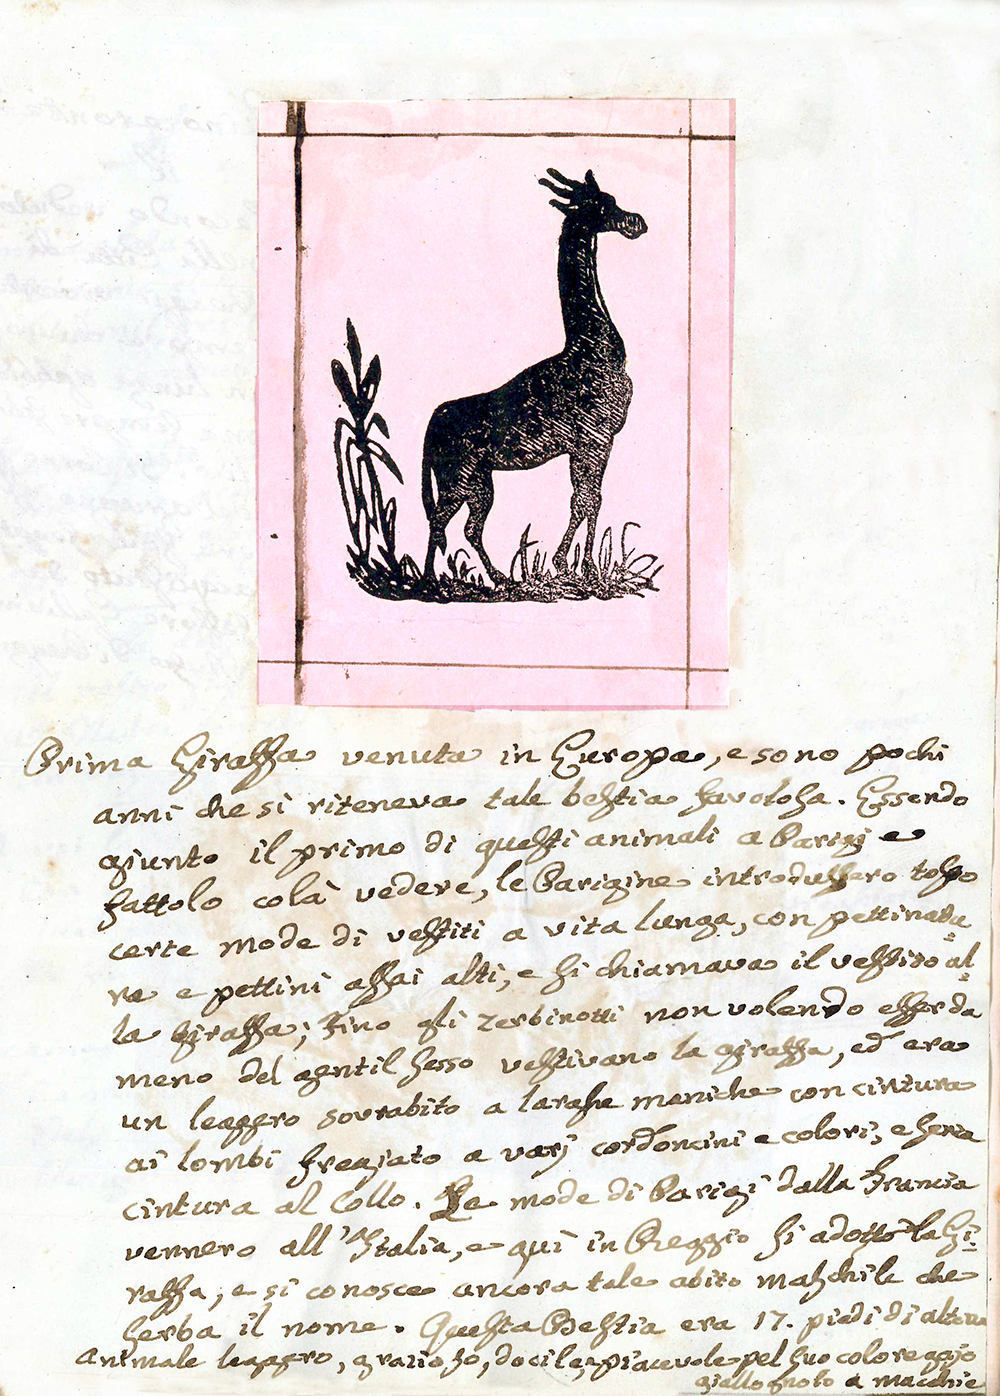 Prima Giraffa venuta in Europa, e sono pochi
anni che si riteneva tale bestia favolosa. Essendo
giunto il primo di questi animali a Parigi e
fattolo colà vedere, le Parigine introdussero tosto
certe mode di vestiti a vita lunga, con pettinatu=
re e pettini assai alti, e si chiamava il vestito al=
la Giraffa; Fino gli Zerbinotti non volendo esser da
meno del gentil sesso vestivano la giraffa, ed era
un leggero sovrabito a larghe maniche con cintura
ai lombi fregiato a varj cordoncini e colori, e senza
cintura al Collo. Le mode di Parigi dalla Francia
vennero all'Italia, e quì in Reggio si adottò la Gi=
raffa, e si conosce ancora tale abito maschile che
serba il nome. Questa Bestia era 17. piedi di altura
animale leggero, grazioso, docile, piacevole pel suo coloreggio
giallognolo a macchie